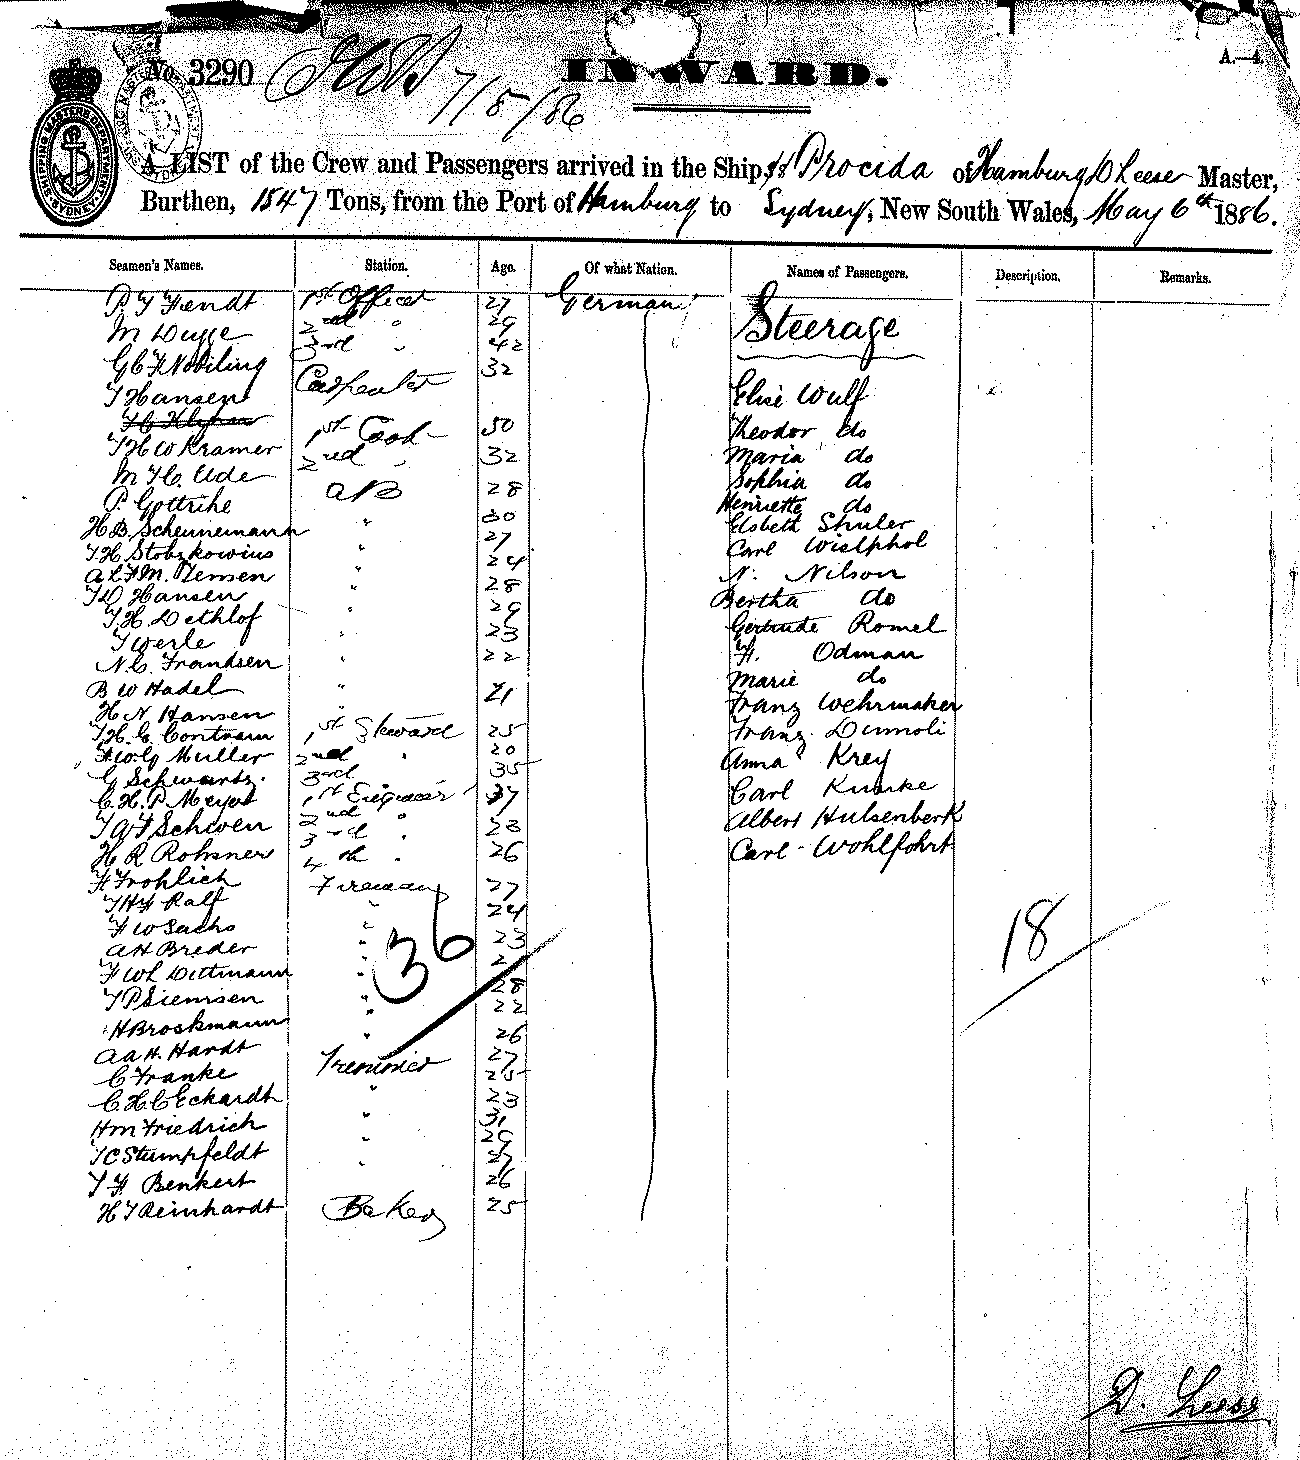 No 3290
7/5/86
INWARD.
A.—4.
SHIPPING MASTERS DEPARTMENT SYDNEY
A LIST of the Crew and Passengers arrived in the Ship ss Procida of Hamburg D Leese Master,
Burthen, 1547 Tons, from the Port of Hamburg to Sydney, New South Wales, May 6th 1886.
Seamen's Names. Station. Age. Of what Nation. Names of Passengers. Description. Remarks.
P. J Fendt 1st Officer 27 German
M Duyje 2nd " 29
G C F Nobiling 3rd " 42
J Hansen Carpenter 32
J H W Kramer 1st Cook 50
M F C. Ude 2nd " 32
P. Gottrihe AB 28
H B. Scheunemann " 30
J H Stobzkowius " 27
A L F M. Jensen " 24
J D Hansen " 28
J H Dethlof " 29
J Werle " 23
N C. Frandsen " 22
B W Hadel "
H N Hansen " 21
J H. G Contraum 1st Steward 25
F W. G Muller 2nd " 20
G Schwartz. 3rd 35
C. H. P Meyer 1st Engineer 37
J A F Schwen 2nd "
H R Rohsner 3rd " 23
F Frohlich 4th " 26
J H F Ralf Fireman 27
F W Sachs " 24
A H Breder " 23
F W L Dittmann "
J P Siemsen " 28
H Broskmann " 22
A A H. Hardt " 26
C Franke Trimmer 27
C. H C Eckardt " 25
H M Friedrich " 23
J C Stumpfeldt " 29
J F Benkert " 26
H J Reinhardt Baker 25
36
Steerage
Elise Wulf
Theodor do
Maria do
Sophia do
Henriette do
Elsbeth Shuler
Carl Wislphol
N. Nilson
Bertha do
Gertrude Romel
F. Odman
Marie do
Franz Wehrmaker
Franz Dunnoli
Anna Krey
Carl Knuske
Albert Hulsenberk
Carl Wohlfohrt
18
D. Leese